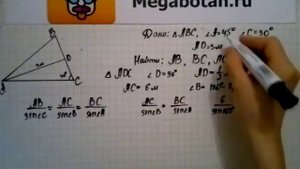 Megabotan.ru
Дано: △ABC, ∠A=45° ∠C=30°
AD=3м
Найти: AB, BC, AC
△ ADC ∠D=90° AD=
AC = 6 м ∠B=
AB/sin∠C = AC/sin∠B = BC/sin∠A
AC/sin∠B = BC/sin∠A
A
C